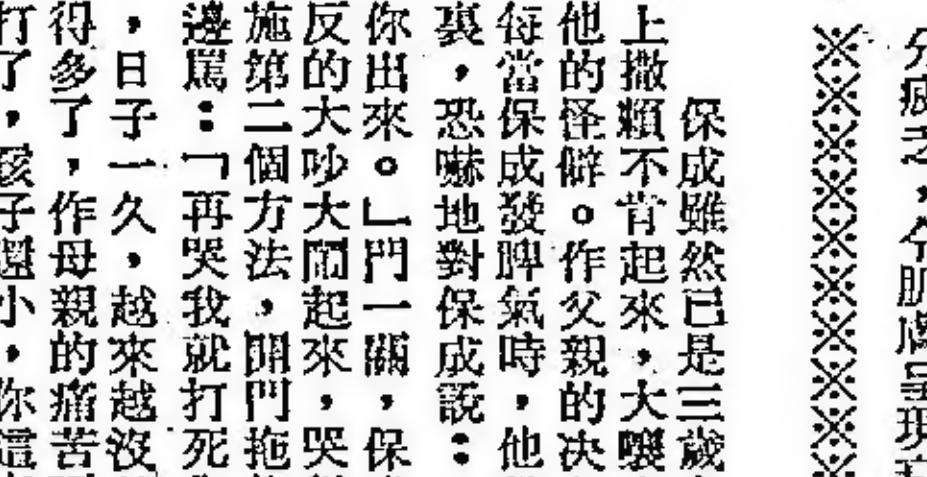 分疲乏，令肌膚呈現
保成雖然已是三歲
上撒賴不肯起來，大嚷
他的怪僻。作父親的决
每當保成發脾氣時，他
裏，恐嚇地對保成說：
你出來。」門一關，保
反的大吵大鬧起來，哭
施第二個方法，開門拖
邊罵：「再哭我就打死
，日子一久，越來越沒
得多了，作母親的痛苦
打了，孩子還小，你這